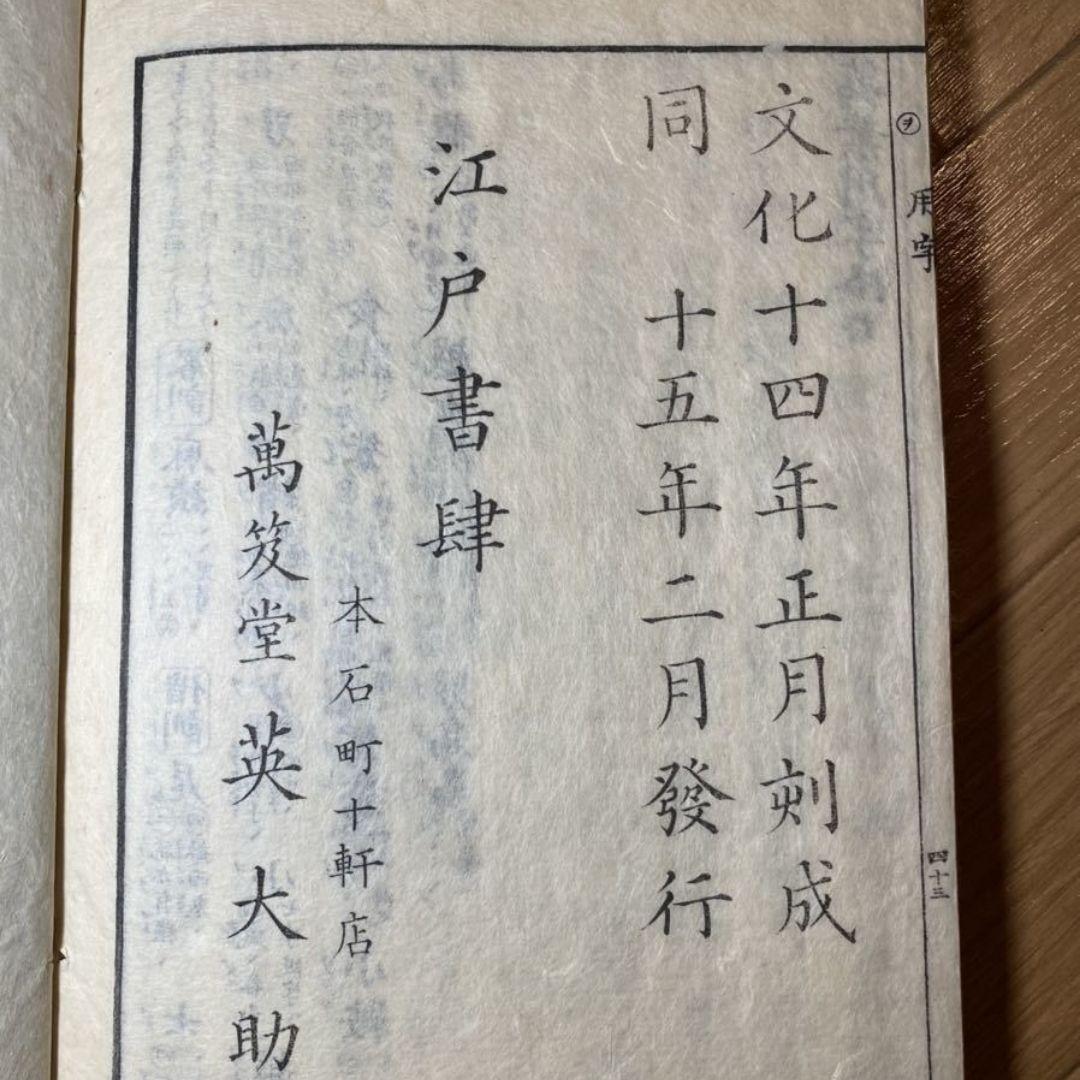 ㋾
用字
四十三
文化十四年正月刻成
同 十五年二月發行
江户書肆
本石町十軒店
萬笈堂英大助